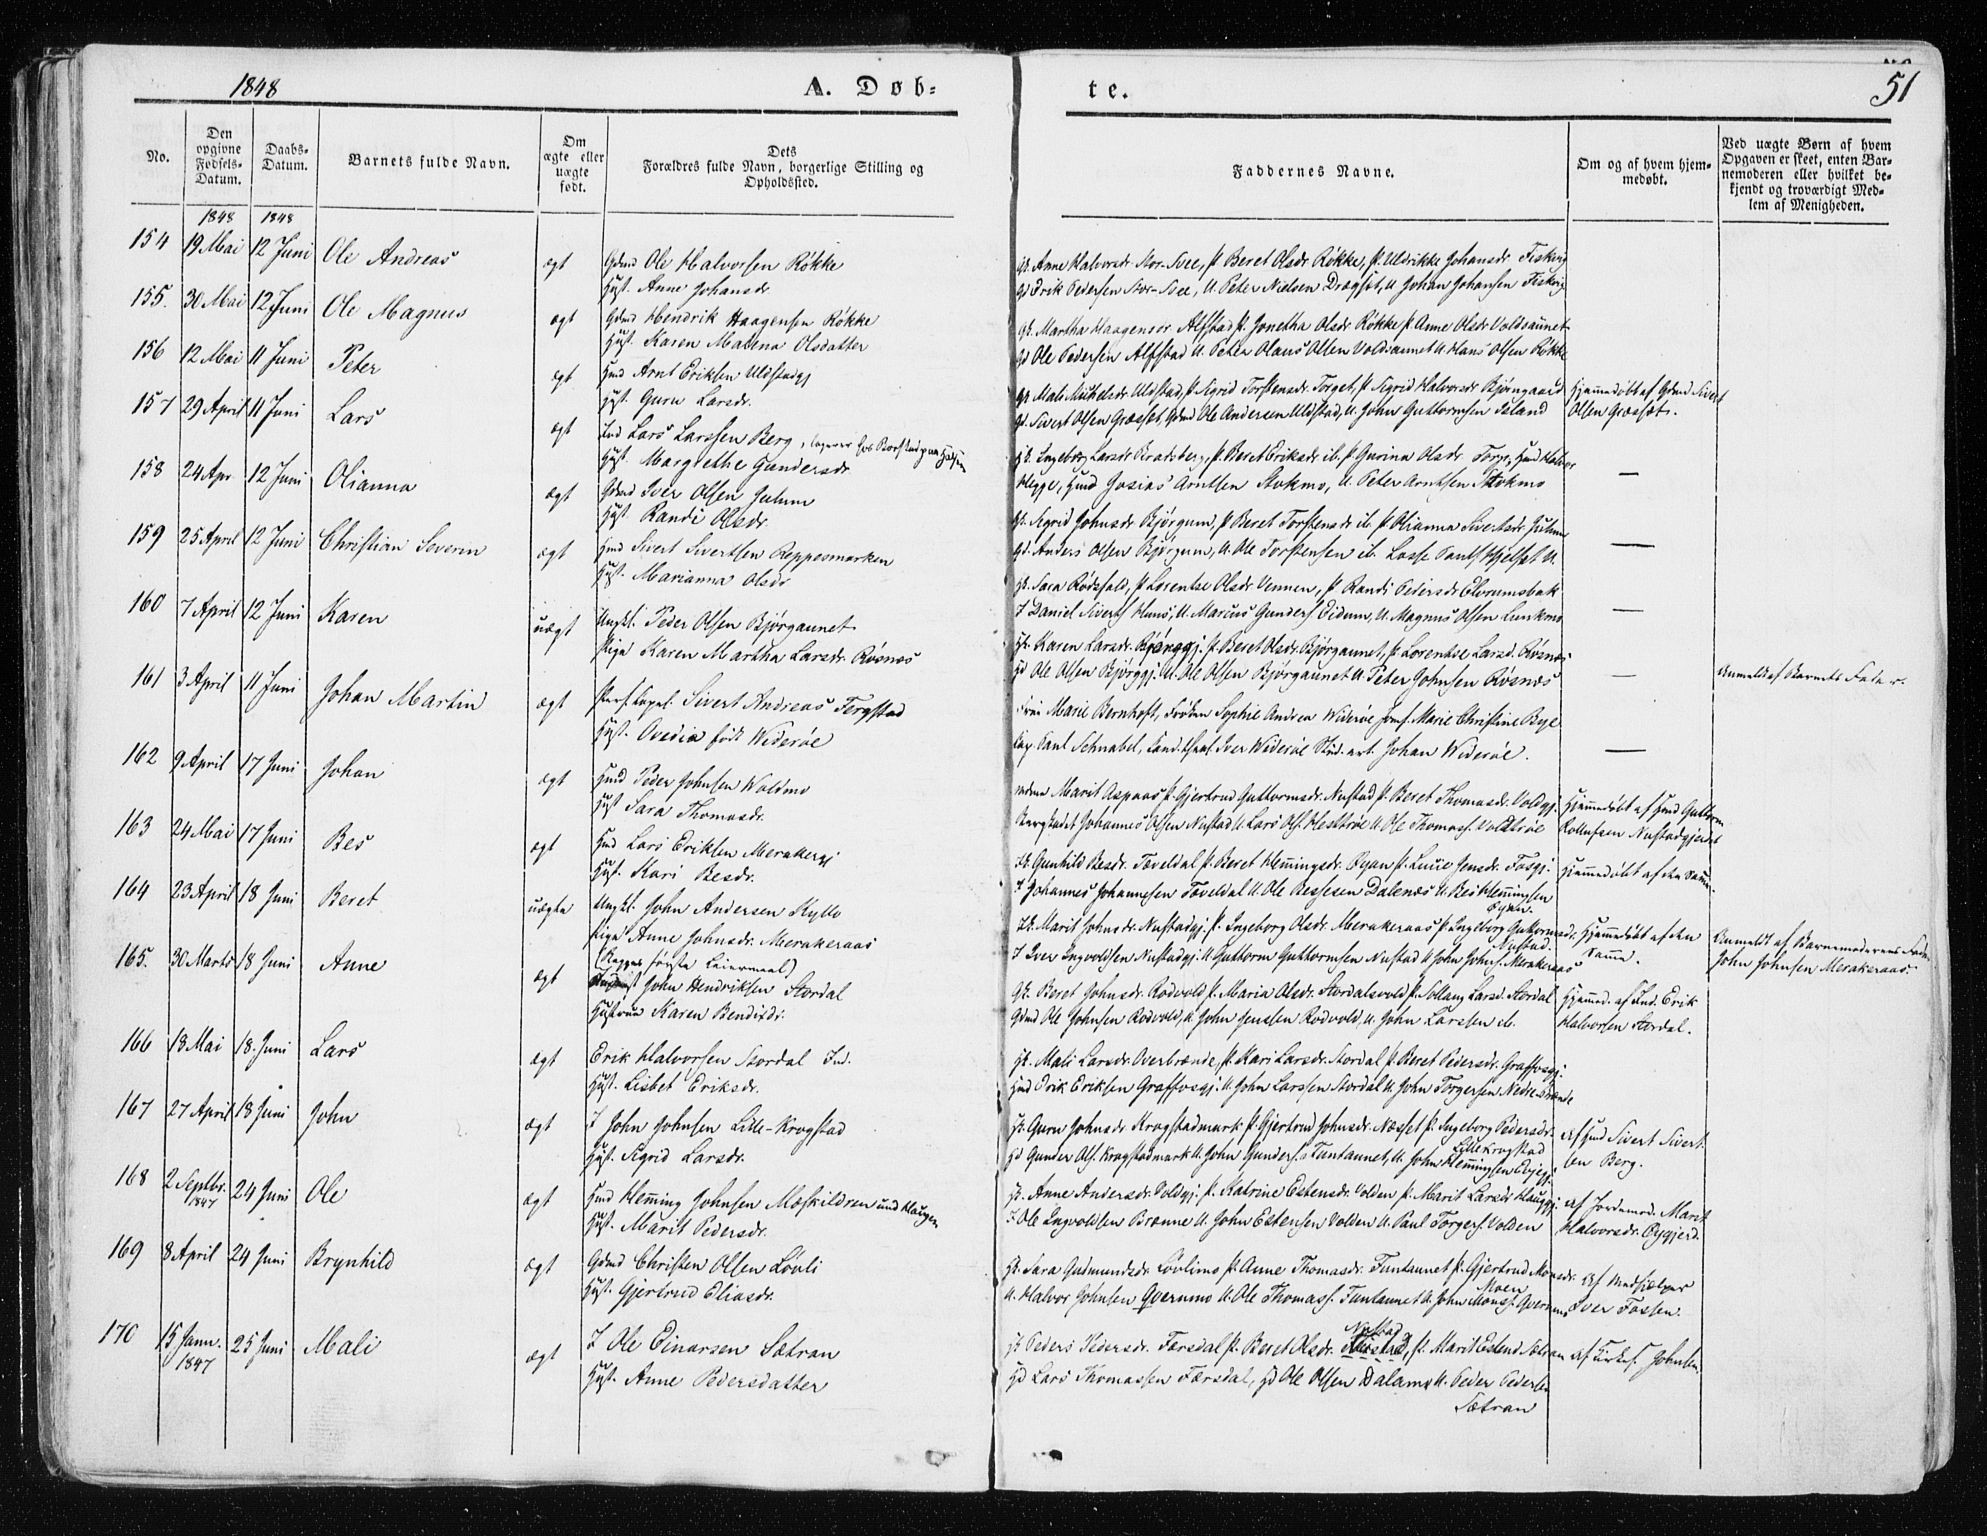 1848
A. Døb-
te.
51
No.
Den opgivne Fødsels-Datum.
Daabs-Datum.
Barnets fulde Navn.
Om ægte eller uægte født.
Dets Forældres fulde Navn, borgerlige Stilling og Opholdssted.
Faddernes Navne.
Om og af hvem hjemmedøbt.
Ved uægte Børn af hvem Opgaven er skeet, enten Barnemoderen eller hvilket bekjendt og troværdigt Medlem af Menigheden.
1848 1848
154 19 Mai 12 Juni Ole Andreas ægt Gdmd Ole Halvorsen Røkke
Hust. Anne Johansdr
Gk. Anne Halvorsdr Stor-Svee, P. Beret Olsdr Røkke, P. Uldrikke Johansdr Fiskvig
Gd Erik Pedersen Stor-Svee, U. Peter Nielsen Dragset, U Johan Johansen Fiskvig
155. 30 Mai 12 Juni Ole Magnus ægt Gdmd Hendrik Haagensen Røkke
Hust. Karen Malena Olsdatter
Gk. Martha Haagensdr Alfstad P. Jonetha Olsdr Røkke P. Anne Olsdr Voldsaunet
Gd Ole Pedersen Alfstad U. Peter Olaus Olsen Voldsaunet U. Hans Olsen Røkke
156 12 Mai 11 Juni Peter ægt Hmd Arnt Eriksen Uldstadgj
Hust. Guru Larsdr.
Gk Mali Mikelsdr Uldstad, P. Sigrid Torstensdr. Torget, P. Sigrid Halvorsdr Bjørngaard
Gd. Sivert Olsen Græsset, Gdmd Ole Andersen Uldstad, U. John Guttormsen Island
Hjemmedøbt af Gdmd Sivert
Olsen Græsset.
157 29 April 11 Juni Lars ægt Ind Lars Larssen Berg,
Hust. Margrethe Gundersdr
Gk. Ingeborg Larsdr Bradsberg, P. Beret Eriksdr ib, P. Gurina Olsdr Forr, Hmd Halvor
Hegge, Hmd Josias Arntsen Stokmo, U. Peter Arntsen Stokmo
—
158 24 Apr 12 Juni Olianna ægt Gdmd Iver Olsen Julum
Hust. Randi Olsdr.
Gk. Sigrid Johnsdr Bjørgum, P. Beret Torstensdr ib P. Olianna Sivertsdr Julum
Gd. Anders Olsen Bjørgum, U. Ole Torstensen ib. Lasse Hjelset U.
—
159 25 April 12 Juni Christian Severin ægt Hmd Sivert Sivertsen Reppesmarken
Hust. Marianna Olsdr
Gk. Sara Rødsfald, P. Lorentse Olsdr Vennen, P. Randi Pedersdr Elvrumsbak
I Daniel Siverts Huus, U. Marcus Gunders Eidum, U. Magnus Olsen Lunkmo
—
160 7 April 12 Juni Karen uægt Ungk. Peder Olsen Bjørgaunet
Pige Karen Martha Larsdr. Rosnæs
Gk. Karen Larsdr. P. Beret Olsdr. Bjørgaunet, P. Lorentse Larsd. Rosnæs
Gd Ole Olsen Bjørggj. U. Ole Olsen Bjørgaunet U. Peter Johnsen Rosnæs
— Anmeldt af Barnets Fader.
161 3 April 11 Juni Johan Martin ægt Pers. Capel. Sivert Andreas Tergstad
Hust. Ovedia født Widerøe
Frue Marie Bernhoft, Frøken Sophie Andrea Widerøe Jomf. Marie Christine Bye
Cap. Paul Schnabel, Cand. theol. Iver Widerøe Stud. art. Johan Widerøe.
—
162 9 April 17 Juni Johan ægt Hmd Peder Johnsen Woldmo
Hust Sara Thomasdr.
Marit Aspaas P. Gjertrud Guttormsdr. Nustad P. Beret Thomasdr. Voldgj.
Johannes Olsen Nustad U. Lars Ols. Hesttrøe U. Ole Thomass. Voldtrøe
Hjemmedøbt af Hmd Guttorm
Nustadgjerdet
163 24 Mai 17 Juni Bes ægt Hmd Lars Eriksen Merakergj
Hust. Kari Besdr.
Gk. Gunhild Besdr. Toveldal P. Beret Hemingsdr. Øyan P. Lucie Jensdr. Fosgj.
I Johannes Johannesen Toveldal U. Ole Bessesen Dalenæs U. Bes Hemingsen
Øyan.
Hjemmedøbt af den Samme.
164 23 April 18 Juni Beret uægte Ungk. John Andersen Kyllo
Pige Anne Johnsdr. Merakeraas
(Begges første Leiermaal)
Gk. Marit Johnsdr. Nustadgj. P. Ingeborg Olsdr. Merakeraas P. Ingeborg Guttormsdr.
Nustad.
I Iver Ingvoldsen Nustadgj. U. Guttorm Guttormsen Nustad U. John Johns. Merakeraas
Hjemmedøbt af den
Samme.
Anmeldt af Barnemoderens Fader
John Johnsen Merakeraas.
165. 30 Marts 18 Juni Anne ægt John Hendriksen Stordal
Hustrue Karen Bendixdr.
Gk. Beret Johnsdr. Rodvold P. Maria Olsdr. Stordalsvold P. Sollaug Larsd. Stordal
Gdmd Ole Johnsen Rodvold, U. John Jenssen Rodvold, U. John Larssen ib.
Hjemmed. af Ind. Erik
Halvorsen Stordal.
166 13 Mai 18. Juni Lars ægt Erik Halvorsen Stordal Ind.
Hust. Lisbet Eriksdr.
Gk. Mali Larsdr. Overbrænde, P. Kari Larsdr. Stordal P. Beret Pedersdr. Graffosgj.
Hmd Erik Eriksen Graffosgj. U. John Larssen Stordal U. John Torgersen Nedrebrænde
167 27 April 18 Juni John ægt I John Johnsen Lille-Krogstad
Hust. Sigrid Larsdr.
Gk. Guru Johnsdr Krogstadmark P. Gjertrud Johnsdr. Næsset P. Ingeborg Pedersdr.
Lille Krogstad
Gd Gunder Ols. Krogstadmark U. John Gunders. Funtaunet, U. John Hemingsen
af Hmd Sivert Sivert
sen Berg.
168 2 Septbr. 1847 24 Juni Ole ægt Hmd Heming Johnsen Mæskildren und Haugen
Hust. Marit Pedersdr.
Gk. Anne Andersdr. Voldgj. P. Katrine Estensdr. Volden P. Marit Larsdr. Hauggj.
I Ole Ingvoldsen Brenne U. John Estensen Volden U. Paul Torgers. Volden
af Jordemod. Marit
Halvorsdr.
169 8 April 24 Juni Brynhild ægt Gdmd Christen Olsen Løvli
Hust. Gjertrud Eliasdr.
Gk. Sara Gudmundsdr. Løvlimo P. Anne Thomasdr. Funtaunet P. Gjertrud Monsdr.
Moen
U. Halvor Johnsen Qvernmo U. Ole Thomass. Funtaunet U. John Monss. Qvernmo
af Medhjælper
Iver Fossen.
170 15 Janr. 1847 25 Juni Mali ægt I Ole Einarsen Sætran
Hust. Anne Pedersdatter
Gk Peders Pedersdr. Færsdal P. Beret Olsdr. Nustad, P. Marit Estensd. Sætran
Gd Lars Thomassen Færsdal, Gd Ole Olsen Dalamo, U. Peder Pedersen
Sætran
af Kirkes. Johnsen.